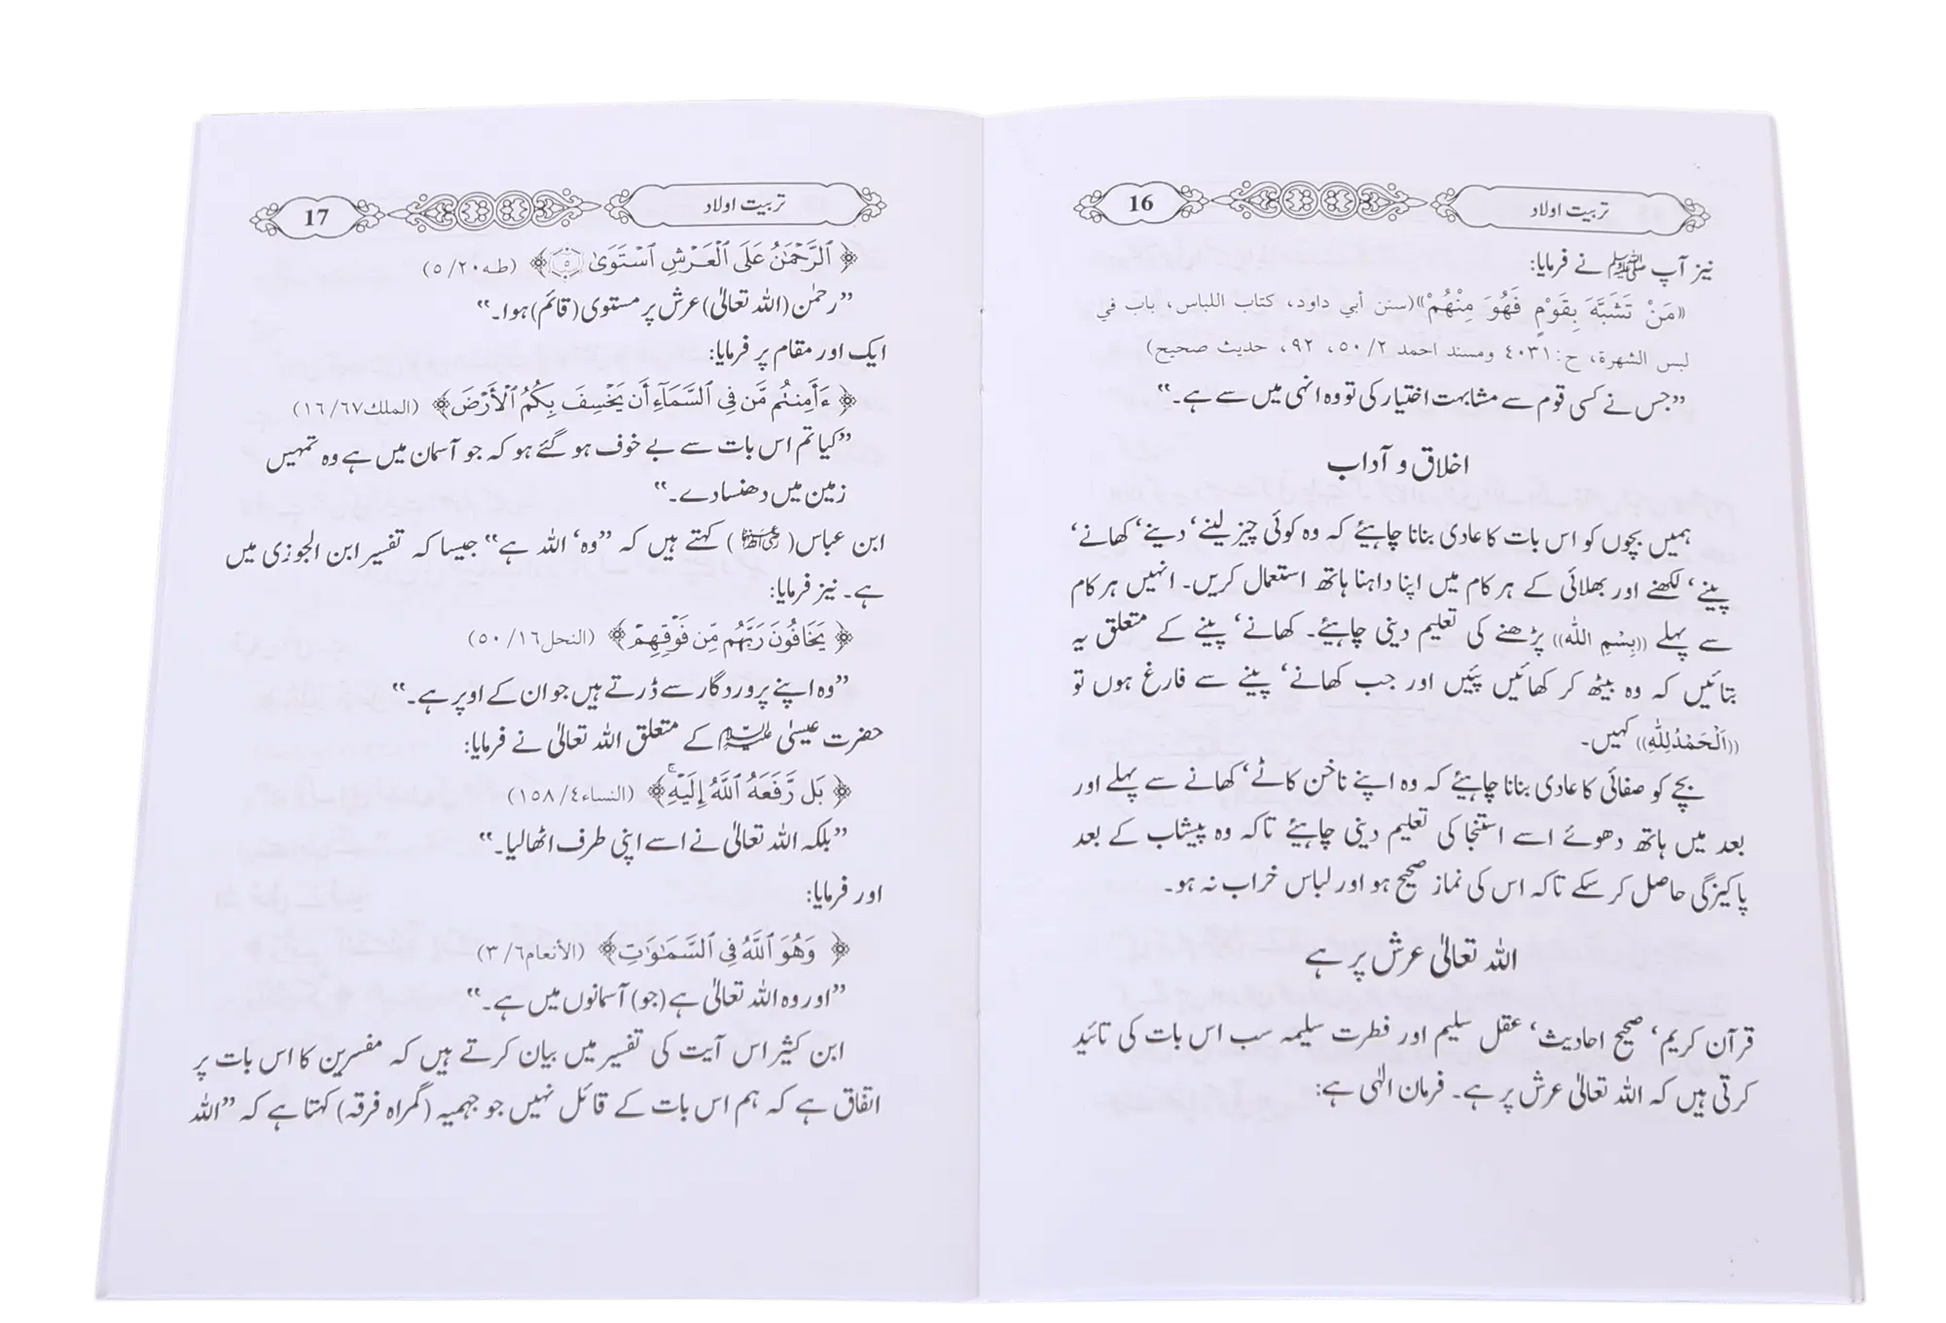 تربیت اولاد 16
نیز آپ ﷺ نے فرمایا:
((مَنْ تَشَبَّهَ بِقَوْمٍ فَهُوَ مِنْهُمْ))(سنن أبي داود، كتاب اللباس، باب في
لبس الشهرة، ح:٤٠٣١ ومسند احمد ٢/ ٥٠، ٩٢، حديث صحيح)
”جس نے کسی قوم سے مشابہت اختیار کی تو وہ انہی میں سے ہے۔“
اخلاق و آداب
ہمیں بچوں کو اس بات کا عادی بنانا چاہیئے کہ وہ کوئی چیز لینے‘ دینے‘ کھانے‘
پینے‘ لکھنے اور بھلائی کے ہر کام میں اپنا داہنا ہاتھ استعمال کریں۔ انہیں ہر کام
سے پہلے ((بِسْمِ اللّٰه)) پڑھنے کی تعلیم دینی چاہیئے۔ کھانے‘ پینے کے متعلق یہ
بتائیں کہ وہ بیٹھ کر کھائیں پئیں اور جب کھانے‘ پینے سے فارغ ہوں تو
((اَلْحَمْدُلِلّٰهِ)) کہیں۔
بچے کو صفائی کا عادی بنانا چاہیئے کہ وہ اپنے ناخن کاٹے‘ کھانے سے پہلے اور
بعد میں ہاتھ دھوئے اسے استنجا کی تعلیم دینی چاہیئے تاکہ وہ پیشاب کے بعد
پاکیزگی حاصل کر سکے تاکہ اس کی نماز صحیح ہو اور لباس خراب نہ ہو۔
اللہ تعالیٰ عرش پر ہے
قرآن کریم‘ صحیح احادیث‘ عقل سلیم اور فطرت سلیمہ سب اس بات کی تائید
کرتی ہیں کہ اللہ تعالیٰ عرش پر ہے۔ فرمان الٰہی ہے:
تربیت اولاد 17
﴿ ٱلرَّحْمَٰنُ عَلَى ٱلْعَرْشِ ٱسْتَوَىٰ ٥﴾ (طه٢٠/ ٥)
”رحمٰن (اللہ تعالیٰ) عرش پر مستوی (قائم) ہوا۔“
ایک اور مقام پر فرمایا:
﴿ ءَأَمِنتُم مَّن فِى ٱلسَّمَآءِ أَن يَخْسِفَ بِكُمُ ٱلْأَرْضَ﴾ (الملك٦٧/ ١٦)
”کیا تم اس بات سے بے خوف ہو گئے ہو کہ جو آسمان میں ہے وہ تمہیں
زمین میں دھنسا دے۔“
ابن عباس(رضی اللہ عنہما) کہتے ہیں کہ ”وہ‘ اللہ ہے“ جیسا کہ تفسیر ابن الجوزی میں
ہے۔ نیز فرمایا:
﴿ يَخَافُونَ رَبَّهُم مِّن فَوْقِهِمْ﴾ (النحل١٦/ ٥٠)
”وہ اپنے پروردگار سے ڈرتے ہیں جو ان کے اوپر ہے۔“
حضرت عیسیٰ علیہ السلام کے متعلق اللہ تعالیٰ نے فرمایا:
﴿ بَل رَّفَعَهُ ٱللَّهُ إِلَيْهِ ۚ﴾ (النساء٤/ ١٥٨)
”بلکہ اللہ تعالیٰ نے اسے اپنی طرف اٹھا لیا۔“
اور فرمایا:
﴿ وَهُوَ ٱللَّهُ فِى ٱلسَّمَٰوَٰتِ﴾ (الأنعام٦/ ٣)
”اور وہ اللہ تعالیٰ ہے (جو) آسمانوں میں ہے۔“
ابن کثیر اس آیت کی تفسیر میں بیان کرتے ہیں کہ مفسرین کا اس بات پر
اتفاق ہے کہ ہم اس بات کے قائل نہیں جو جہمیہ (گمراہ فرقہ) کہتا ہے کہ ”اللہ